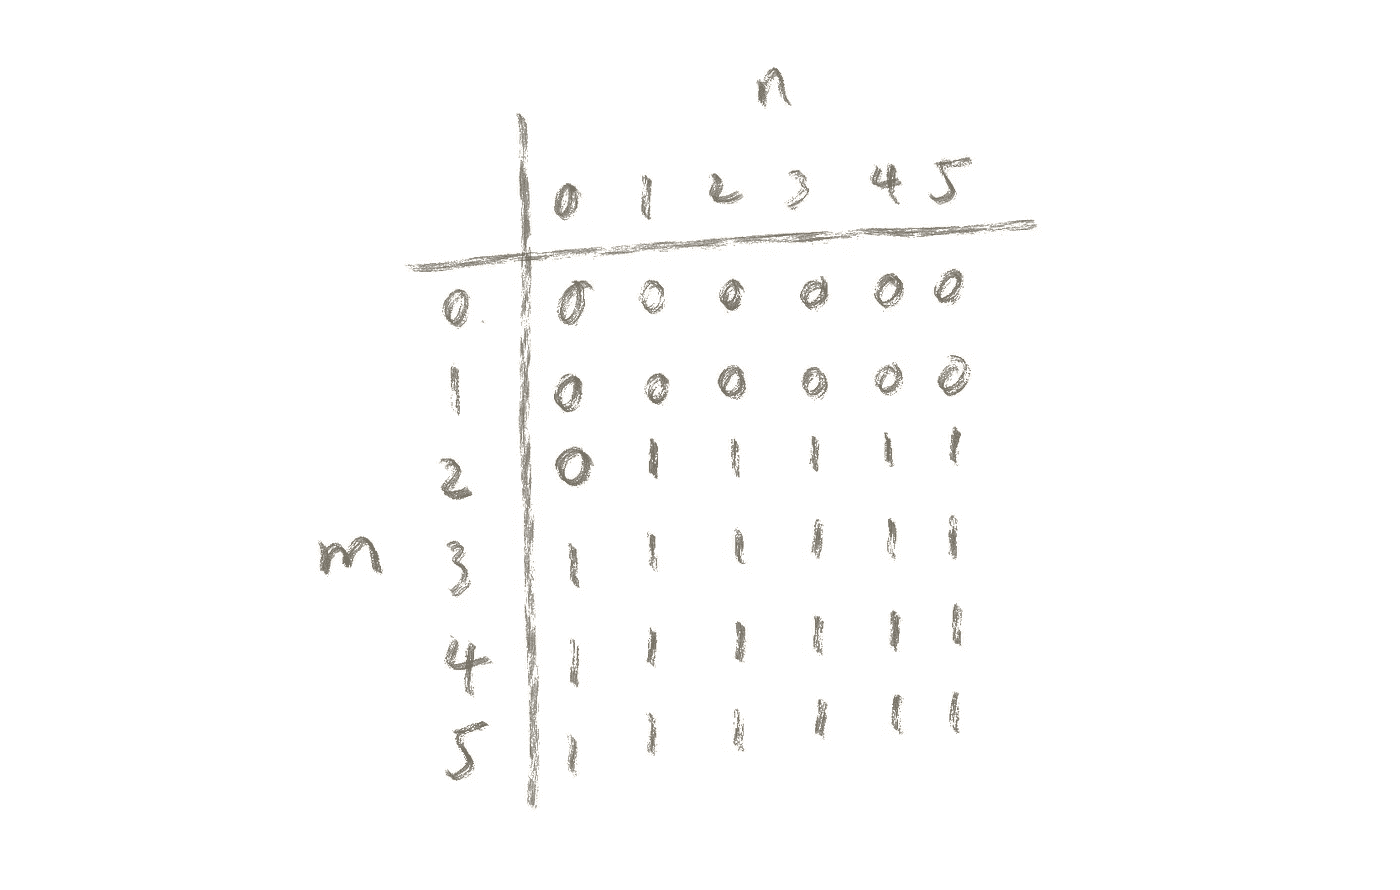 n
0 1 2 3 4 5
0 0 0 0 0 0 0
1 0 0 0 0 0 0
2 0 1 1 1 1 1
m 3 1 1 1 1 1 1
4 1 1 1 1 1 1
5 1 1 1 1 1 1